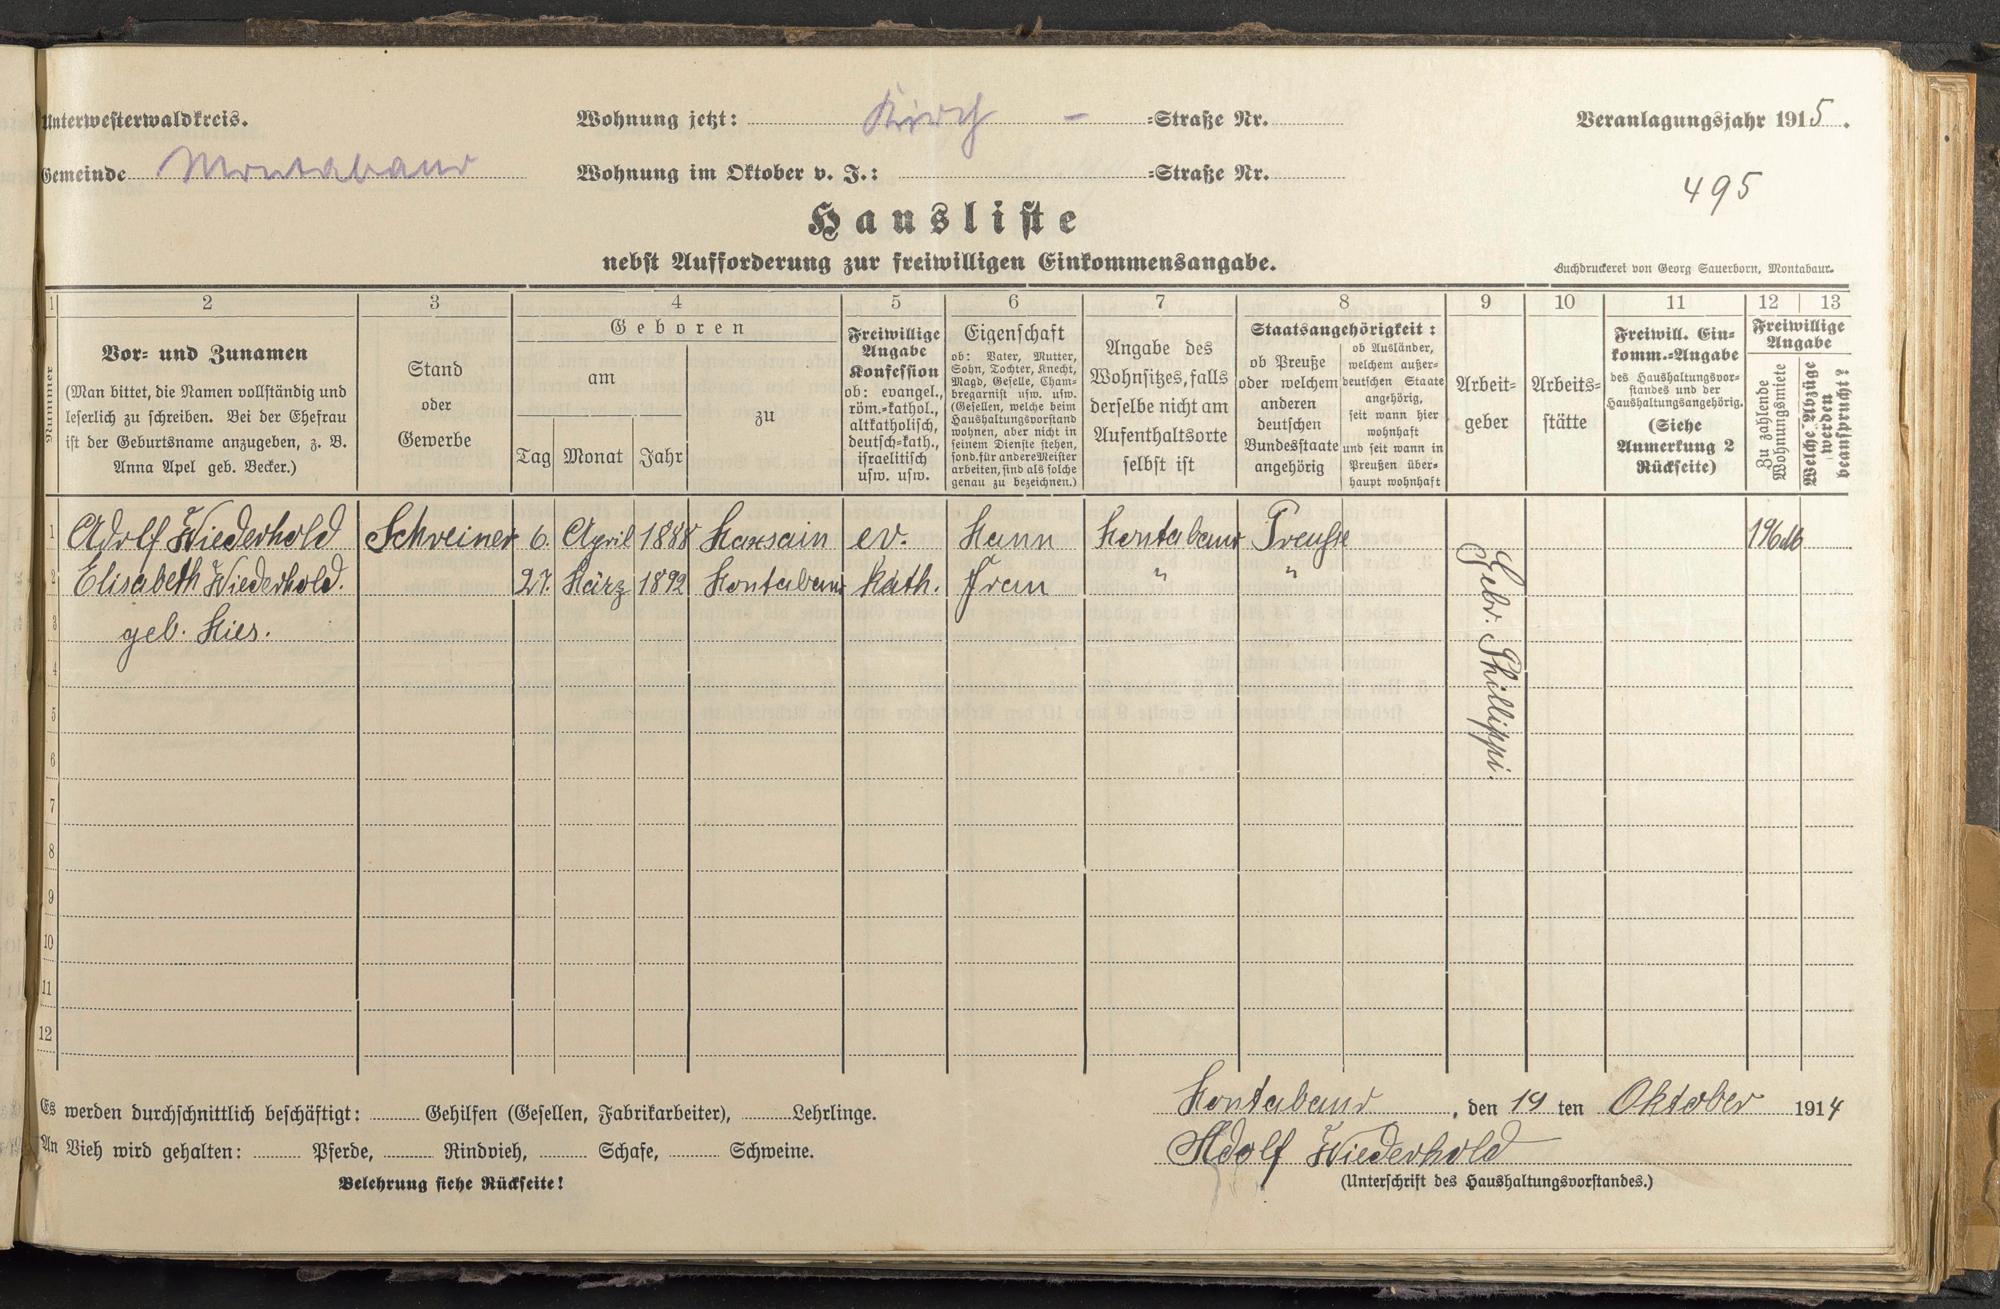 Unterwesterwaldkreis.
Wohnung jetzt: Kirch - =Straße Nr.
Veranlagungsjahr 1915.
Gemeinde Montabaur
Wohnung im Oktober v. J.: =Straße Nr.
495
Hausliste
nebst Aufforderung zur freiwilligen Einkommensangabe.
Buchdruckerei von Georg Sauerborn, Montabaur.
1 2 3 4 5 6 7 8 9 10 11 12 13
Nummer
Vor- und Zunamen
(Man bittet, die Namen vollständig und
leserlich zu schreiben. Bei der Ehefrau
ist der Geburtsname anzugeben, z. B.
Anna Apel geb. Becker.)
Stand
oder
Gewerbe
Geboren
am
Tag Monat Jahr
zu
Freiwillige
Angabe
Konfession
ob: evangel.,
röm.-kathol.,
altkatholisch,
deutsch-kath.,
israelitisch
usw. usw.
Eigenschaft
ob: Vater, Mutter,
Sohn, Tochter, Knecht,
Magd, Geselle, Cham-
bregarnist usw. usw.
(Gesellen, welche beim
Haushaltungsvorstand
wohnen, aber nicht in
seinem Dienste stehen,
sond. für andere Meister
arbeiten, sind als solche
genau zu bezeichnen.)
Angabe des
Wohnsitzes, falls
derselbe nicht am
Aufenthaltsorte
selbst ist
Staatsangehörigkeit:
ob Preuße
oder welchem
anderen
deutschen
Bundesstaate
angehörig
ob Ausländer,
welchem außer-
deutschen Staate
angehörig,
seit wann hier
wohnhaft
und seit wann in
Preußen über-
haupt wohnhaft
Arbeit-
geber
Arbeits-
stätte
Freiwill. Ein-
komm.-Angabe
des Haushaltungsvor-
standes und der
Haushaltungsangehörig.
(Siehe
Anmerkung 2
Rückseite)
Freiwillige
Angabe
Zu zahlende
Wohnungsmiete
Welche Abzüge
werden
beansprucht?
1 Adolf Wiederhold Schreiner 6. April 1888 Maxsain ev. Mann Montabaur Preuße 196 M
2 Elisabeth Wiederhold. 27. März 1892 Montabaur kath. Frau " "
3 geb. Mies.
Gebr. Phillippi.
4
5
6
7
8
9
10
11
12
Es werden durchschnittlich beschäftigt: Gehilfen (Gesellen, Fabrikarbeiter), Lehrlinge.
Montabaur, den 19 ten Oktober 1914
An Vieh wird gehalten: Pferde, Rindvieh, Schafe, Schweine.
Adolf Wiederhold
Belehrung siehe Rückseite!
(Unterschrift des Haushaltungsvorstandes.)